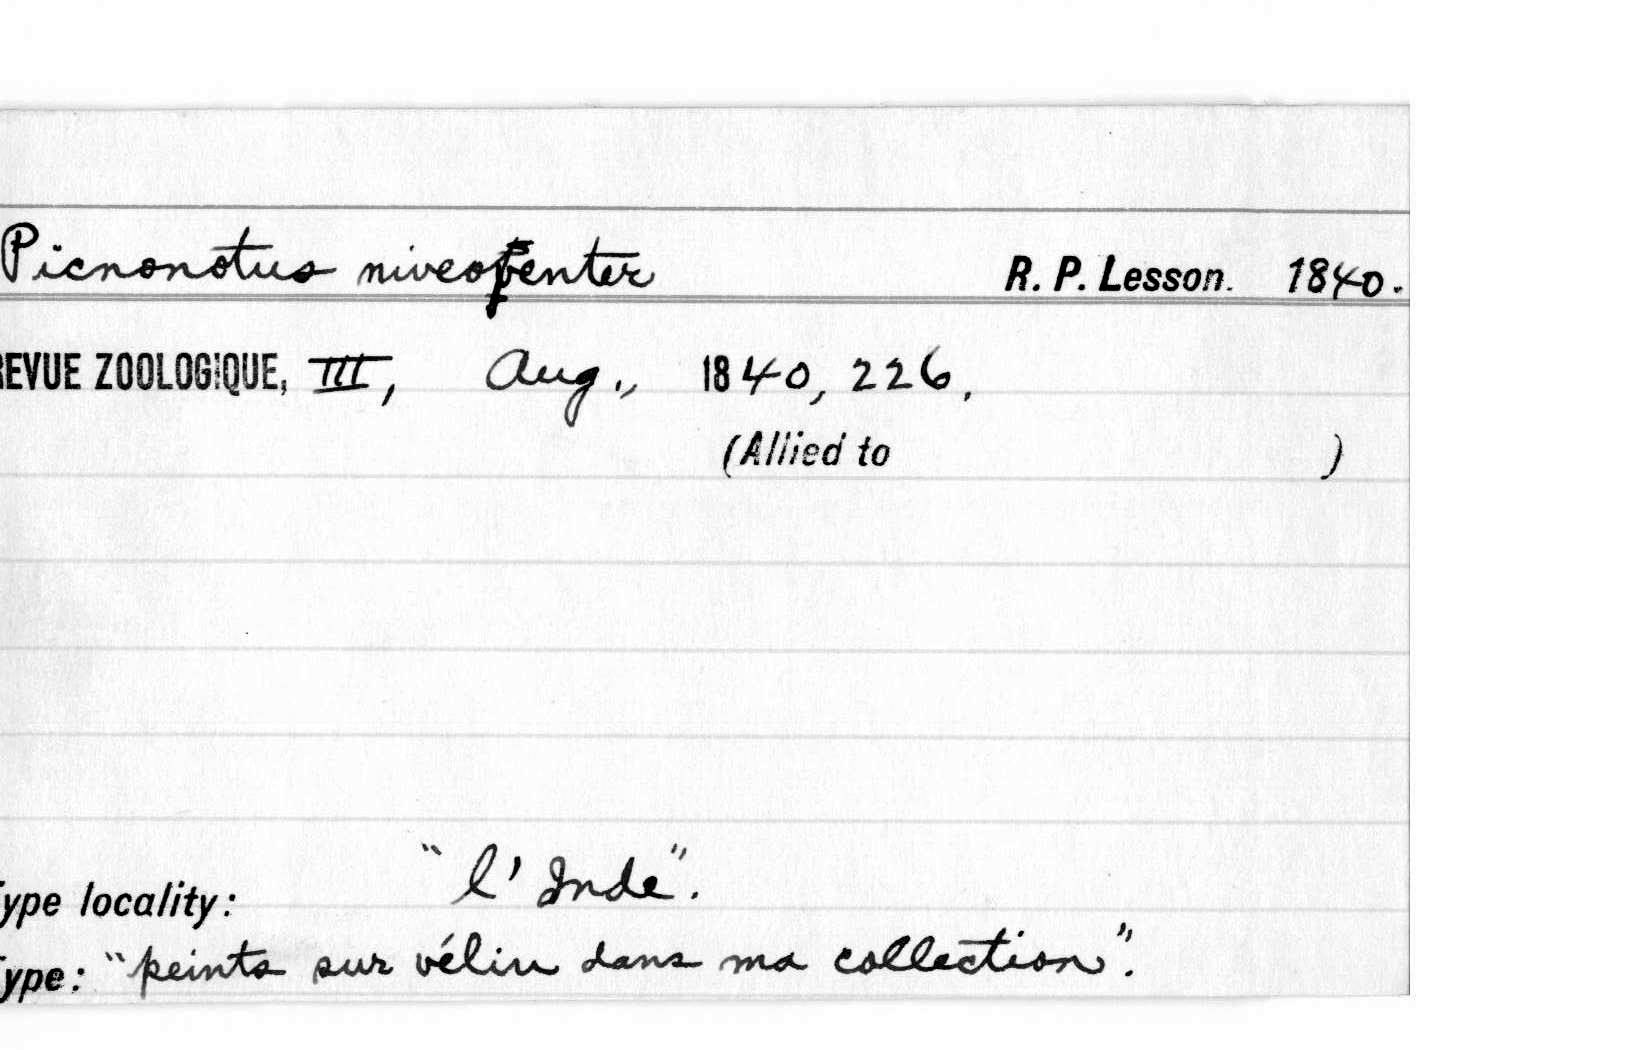 Picnonotus niveopenter R. P. Lesson. 1840.
REVUE ZOOLOGIQUE, III, Aug., 1840, 226.
(Allied to )
Type locality: "l'Inde".
Type: "peints sur vélin dans ma collection".